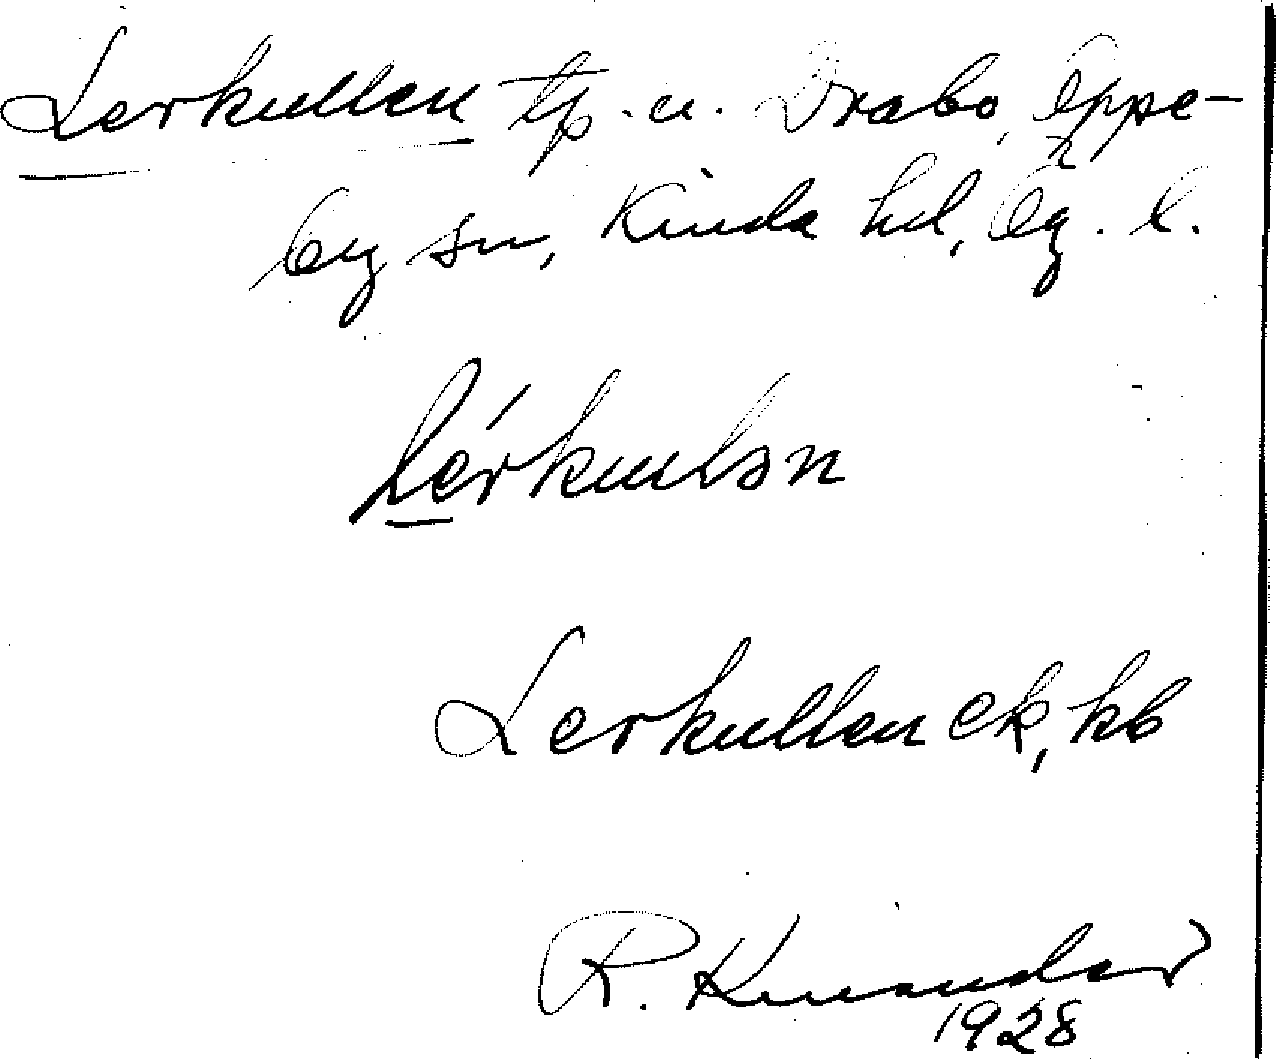 Lerkullen tp. u. Drabo, Oppe-
by sn, Kinda hd, Ög. l.
Lérkulsn
Lerkullen ek, kb
R. Kinander
1928